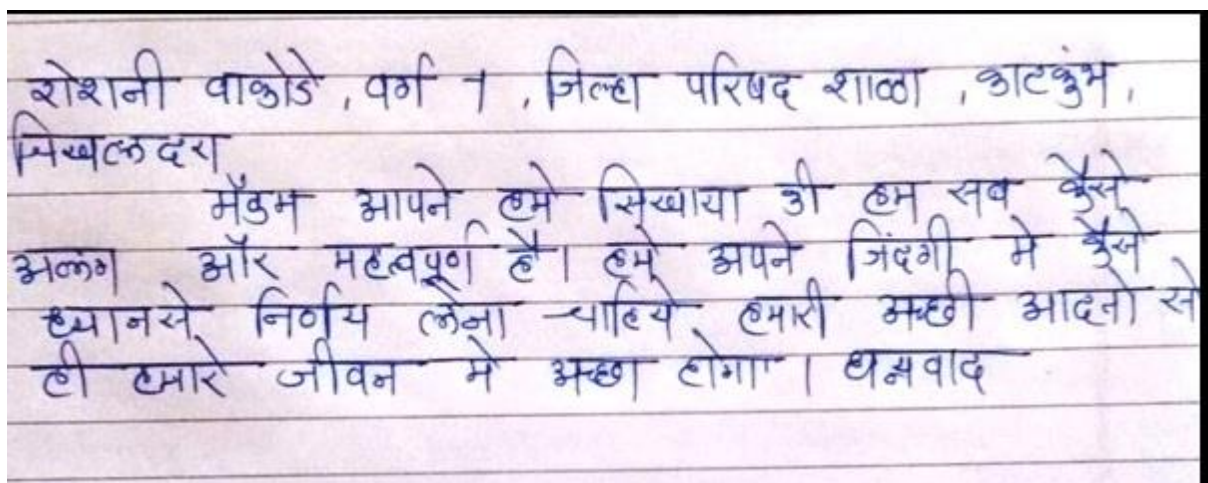 रोशनी वाकोडे, वर्ग 7, जिल्हा परिषद शाळा, काटकुंभ,
चिखलदरा
मॅडम आपने हमे सिखाया की हम सब कैसे
अलग और महत्वपूर्ण है। हमे अपने जिंदगी मे कैसे
ध्यानसे निर्णय लेना चाहिये हमारी अच्छी आदतो से
ही हमारे जीवन मे अच्छा होगा। धन्यवाद